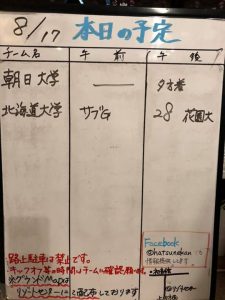 8/17 本日の予定
チーム名 午前 午後
朝日大学 — 夕方着
北海道大学 サブG 28 花園大
・路上駐車は禁止です。
・キックオフ等の時間はチームに確認願います。
※グラウンドMapは
リゾートセンターにて配布しております
Facebook
@hatsunekan にも
情報掲載してます